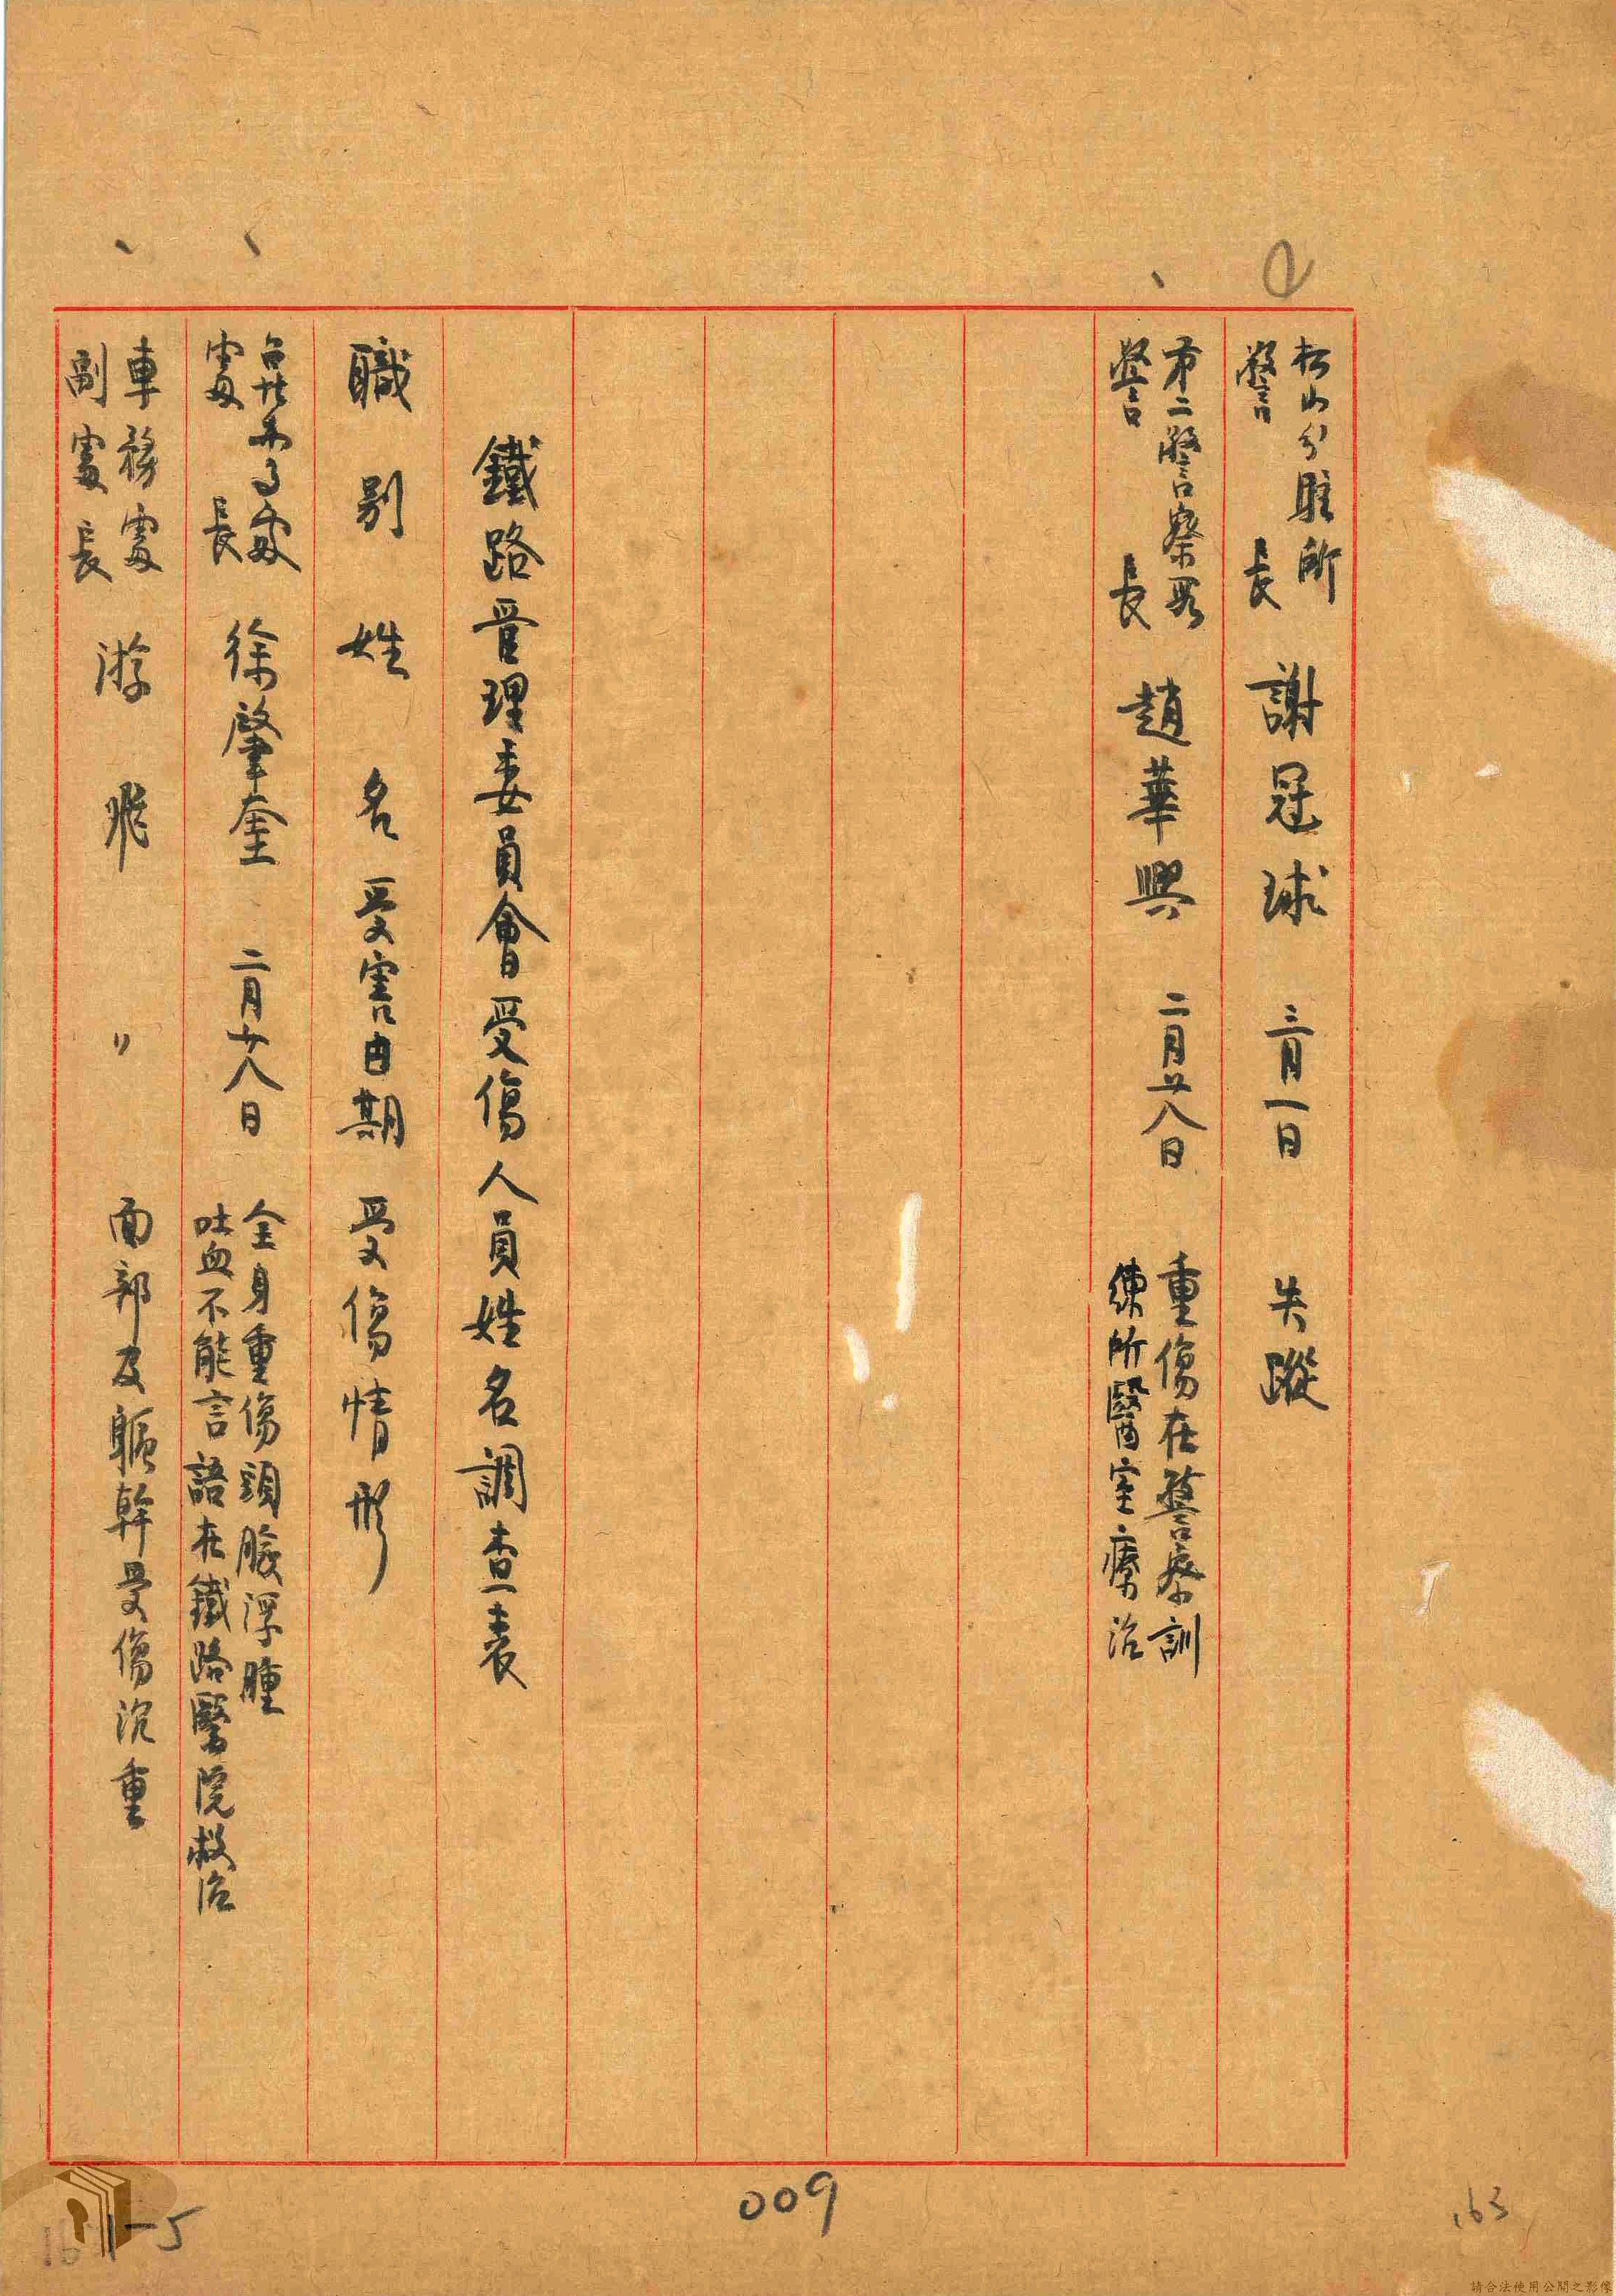 松山分駐所
警長 謝冠球 三月一日 失蹤
第二警察署
警長 趙華興 二月廿八日 重傷在警察訓
練所醫室療治
鐵路管理委員會受傷人員姓名調查表
職別 姓名 受害日期 受傷情形
台北辦事處
處長 徐肇奎 二月廿八日 全身重傷頭臉浮腫
吐血不能言語在鐵路醫院救治
車務處
副處長 游飛 〃 面部及軀幹受傷沉重
009
163
請合法使用公開之影像